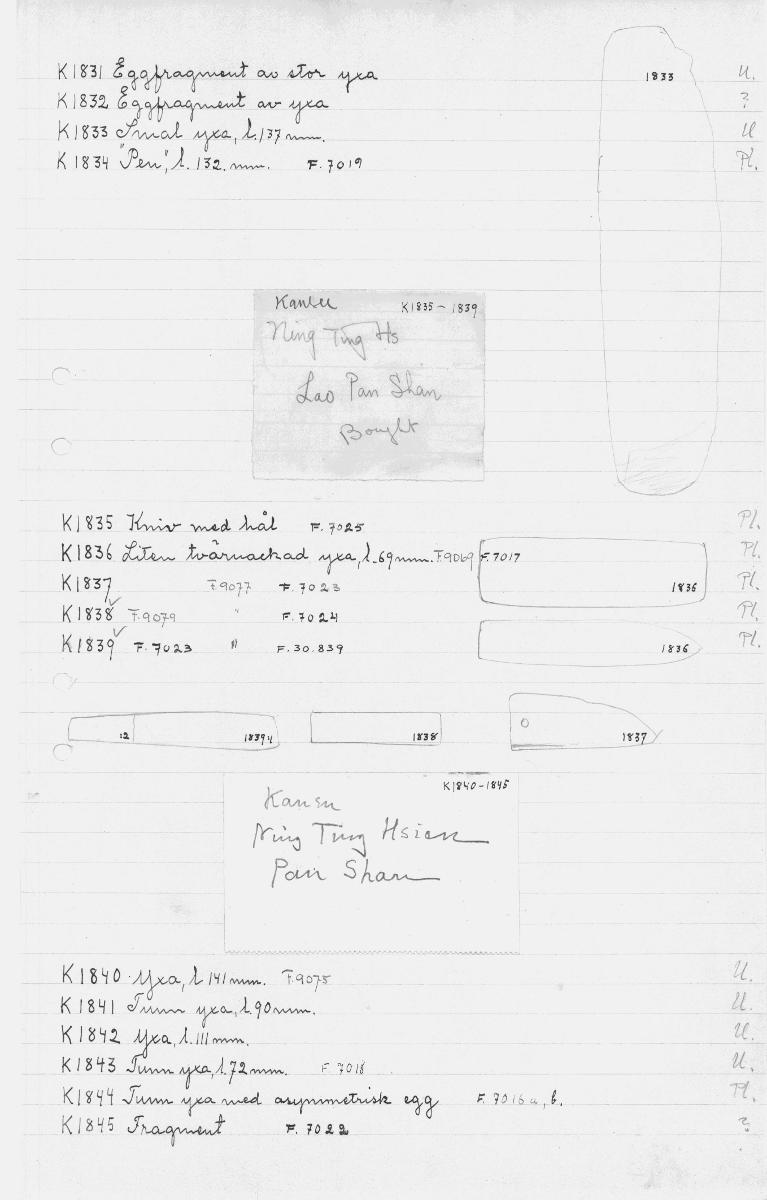 K1831 Eggfragment av stor yxa U.
1833
K1832 Eggfragment av yxa ?
K1833 Smal yxa, l. 137 mm. U
K1834 "Pen", l. 132. mm. F. 7019 Pl.
Kansu K1835 – 1839
Ning Ting Hs
Lao Pan Shan
Bought
K1835 Kniv med hål F. 7025 Pl.
K1836 Liten tvärnackad yxa, l. 69 mm. F.9069 F. 7017 Pl.
K1837 F.9077 F. 7023 Pl.
1836
K1838 F.9079 " F. 7024 Pl.
K1839 F. 7023 " F. 30.839 Pl.
1836
:2 1839:1 1838 1837
K1840-1845
Kansu
Ning Ting Hsien
Pan Shan
K1840 Yxa, l 141 mm. F.9075 U.
K1841 Tunn yxa, l. 90 mm. U.
K1842 Yxa, l. 111 mm. U.
K1843 Tunn yxa, l. 72 mm. F. 7018 U.
K1844 Tunn yxa med asymmetrisk egg F. 7016 a, b. Pl.
K1845 Fragment F. 7022 ?